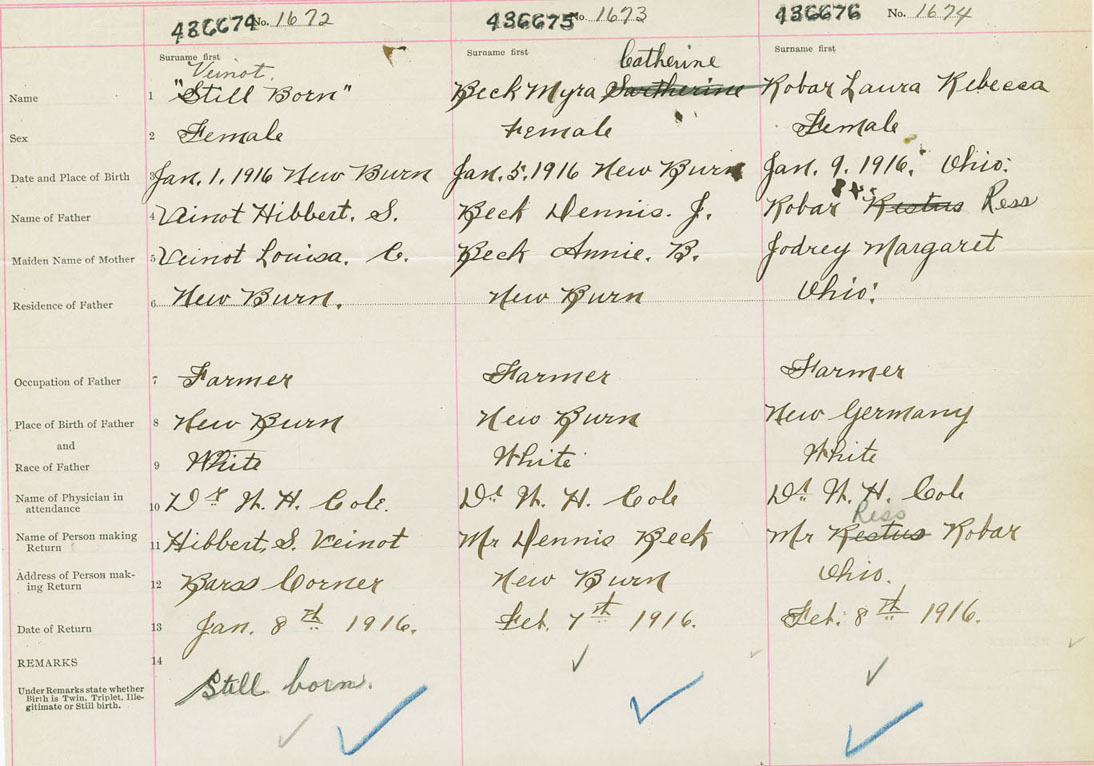 436674 No. 1672 436675 No. 1673 436676 No. 1674
Surname first Surname first Surname first
Veinot. Catherine
Name 1 "Still Born" Beck Myra Robar Laura Rebecca
Sex 2 Female Female Female
Date and Place of Birth 3 Jan. 1. 1916 New Burn Jan. 5. 1916 New Burn Jan. 9. 1916. Ohio.
Name of Father 4 Veinot Hibbert. S. Beck Dennis. J. Robar Restus Ress
Maiden Name of Mother 5 Veinot Louisa. C. Beck Annie. B. Jodrey Margaret
Residence of Father 6 New Burn. New Burn Ohio.
Occupation of Father 7 Farmer Farmer Farmer
Place of Birth of Father 8 New Burn New Burn New Germany
and
Race of Father 9 White White White
Name of Physician in
attendance 10 Dr W. H. Cole. Dr W. H. Cole Dr W. H. Cole
Ress
Name of Person making
Return 11 Hibbert. S. Veinot Mr Dennis Beck Mr Restus Robar
Address of Person mak-
ing Return 12 Barss Corner New Burn Ohio.
Date of Return 13 Jan. 8th 1916. Feb. 7th 1916. Feb. 8th 1916.
REMARKS 14
Under Remarks state whether
Birth is Twin, Triplet, Ille-
gitimate or Still birth.
Still born.